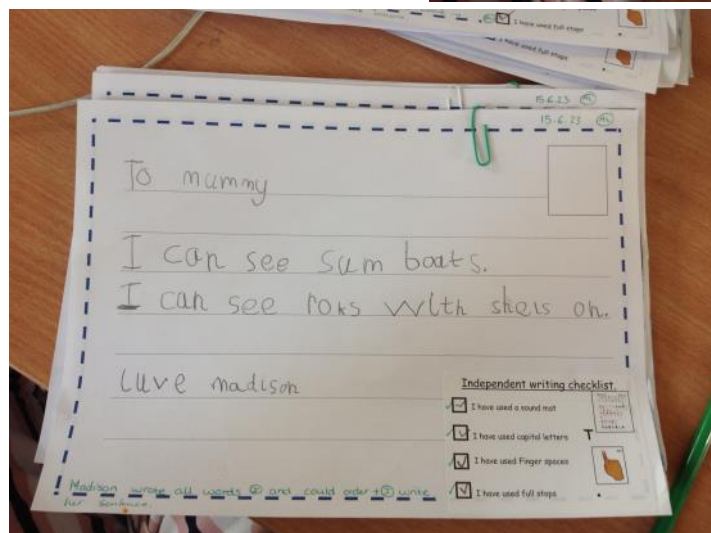 I have used full stops
have used full stops
15.6.23
15.6.23
To mummy
I can see sum boats.
I can see roks with shels on.
Luve madison
Independent writing checklist.
I have used a sound mat
I have used capital letters T
I have used Finger spaces
I have used full stops .
Madison wrote all words and could order + write
her sentence.